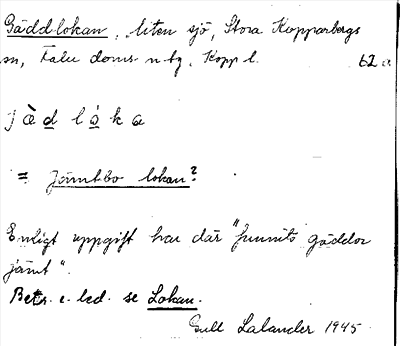 Gäddlokan, liten sjö, Stora Kopparbergs
sn, Falu doms. n tg, Kopp l. 62 a
j ä̀ d l å̀ k a
= Jämtbo lokan?
Enligt uppgift har där "funnits gäddor
jämt".
Betr. e. led. se Lokan.
Gull Lalander 1945